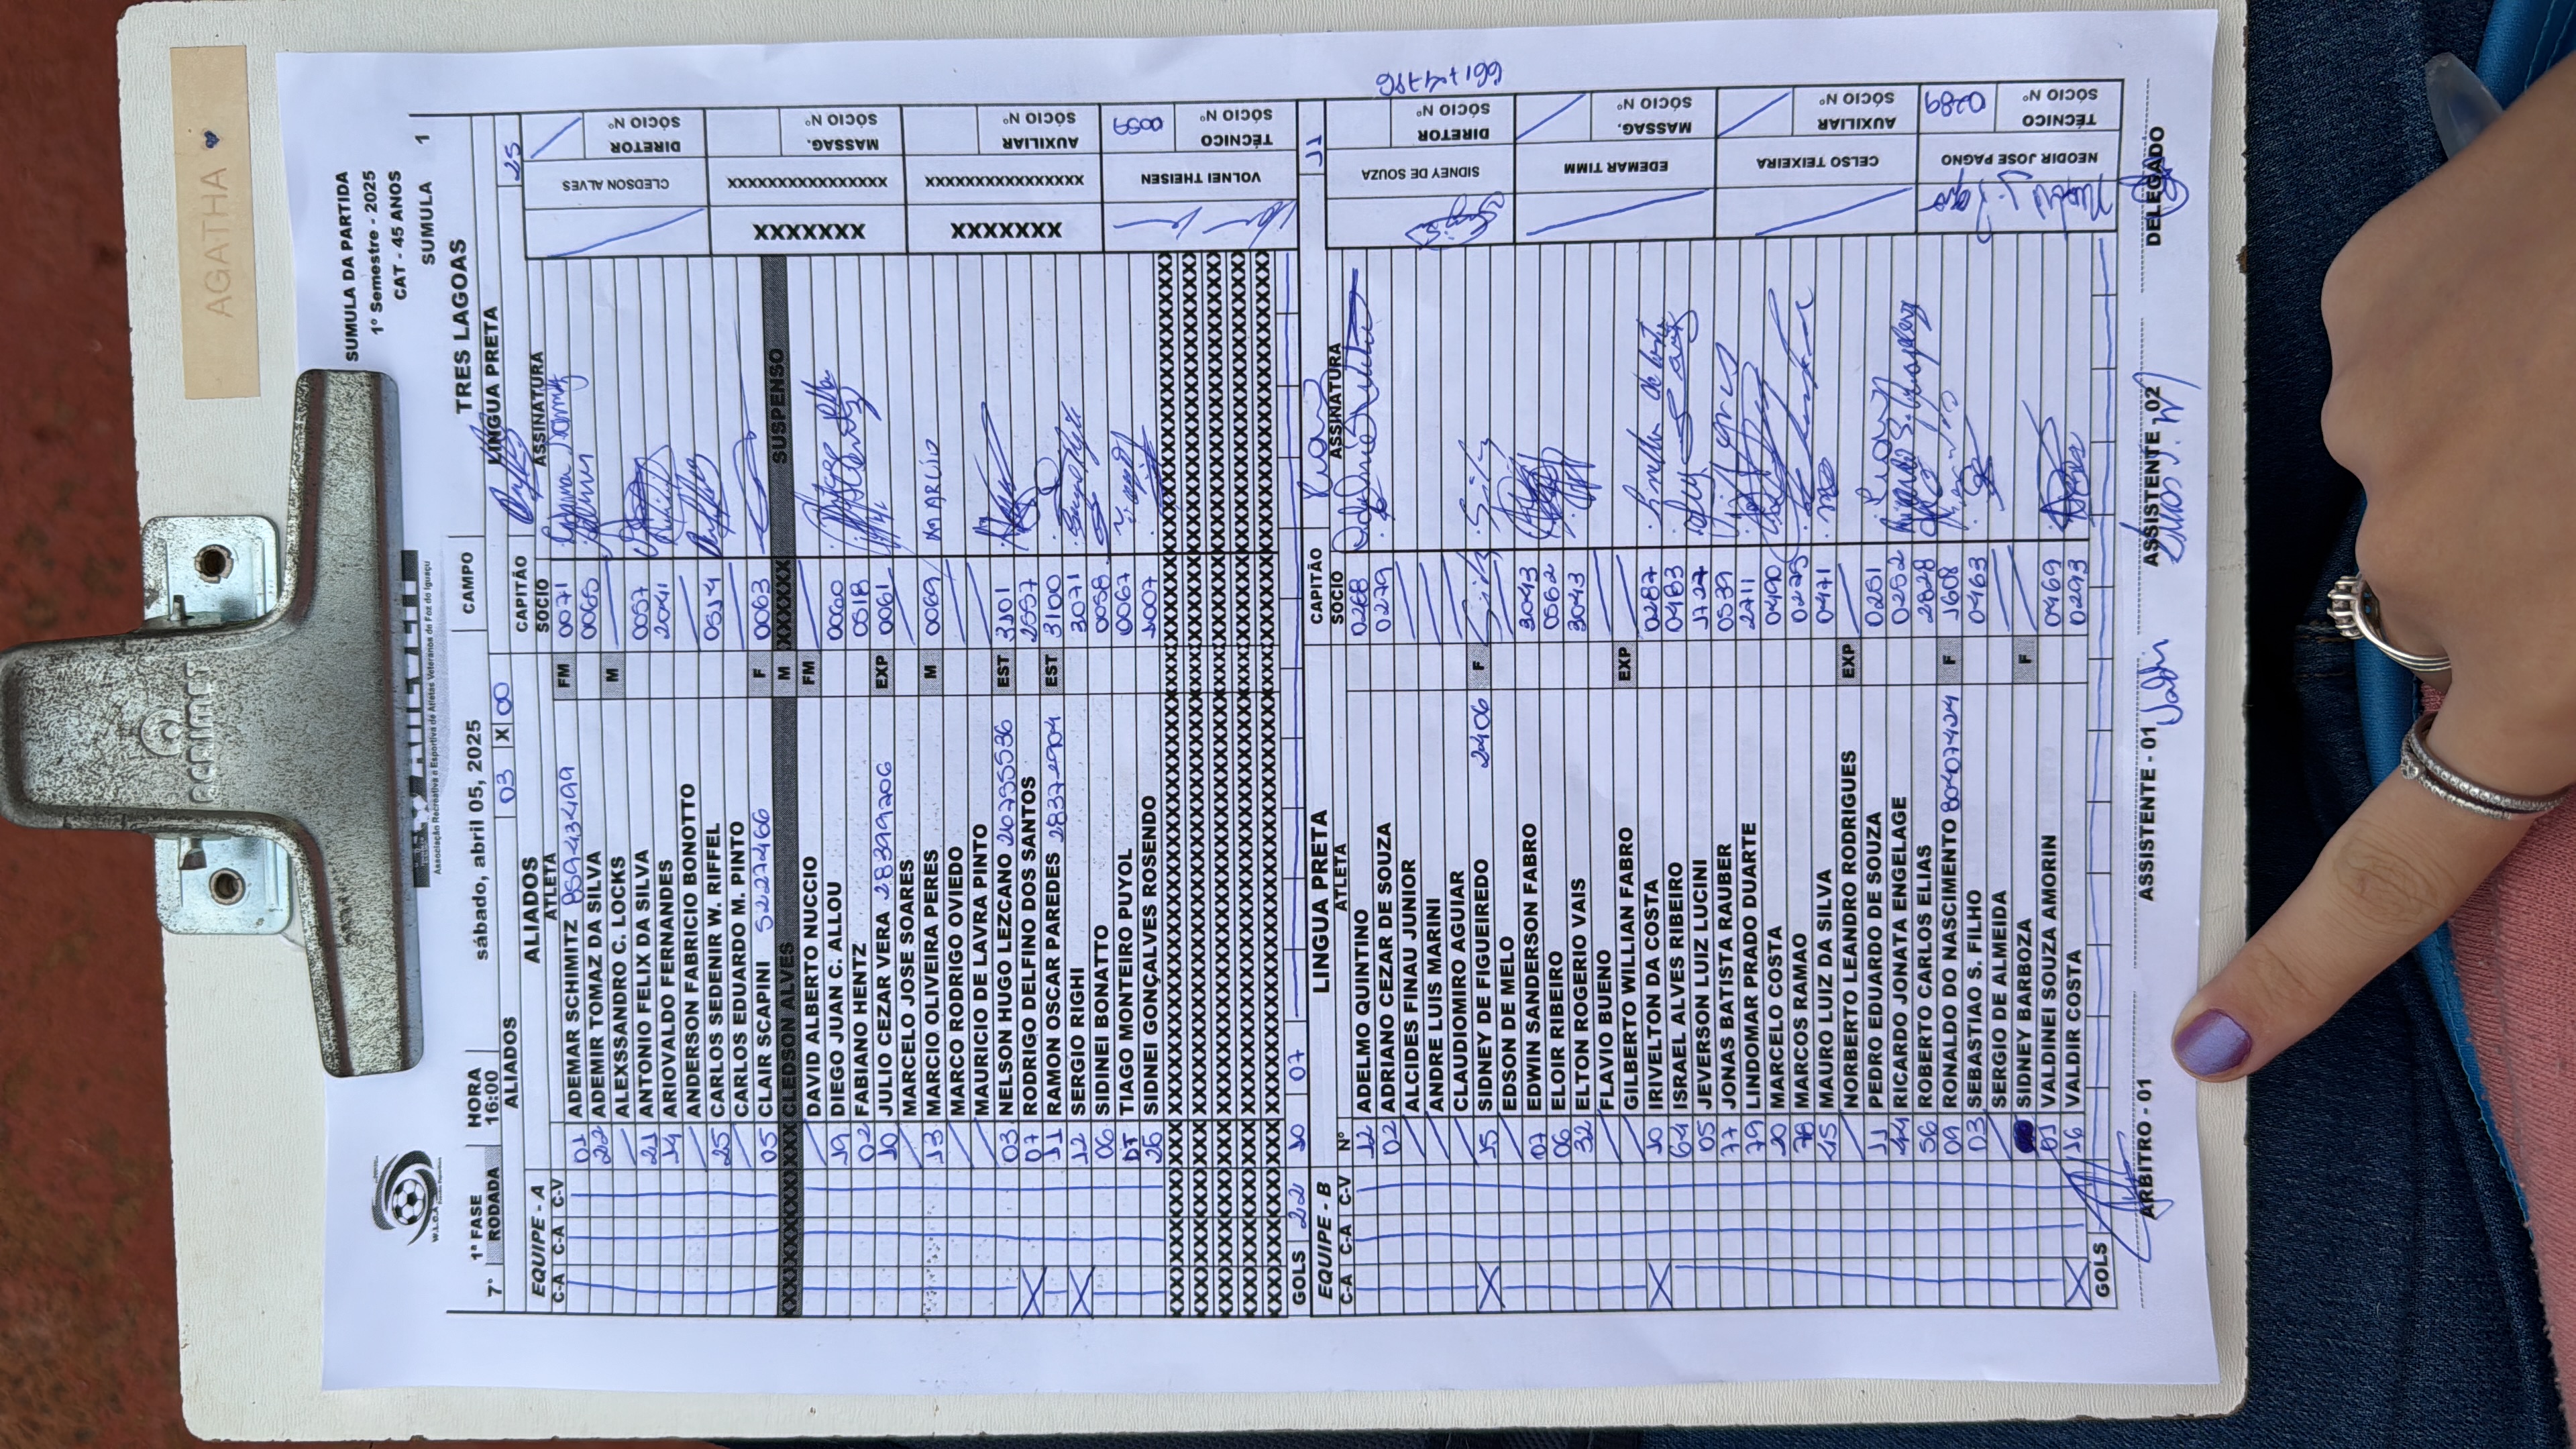 AGATHA
SUMULA DA PARTIDA
1º Semestre - 2025
CAT - 45 ANOS
SUMULA 1
W.L.C.A
Associação Recreativa e Esportiva de Atletas Veteranos de Foz do Iguaçu
7ª 1ª FASE HORA sábado, abril 05, 2025 CAMPO TRES LAGOAS
RODADA 16:00
ALIADOS 03 X 00 LINGUA PRETA
EQUIPE - A ALIADOS CAPITÃO 25
C-A C-A C-V Nº ATLETA SOCIO ASSINATURA
01 ADEMAR SCHIMITZ 85943499 FM 0071
22 ADEMIR TOMAZ DA SILVA 0065
ALEXSSANDRO C. LOCKS M
21 ANTONIO FELIX DA SILVA 0057
14 ARIOVALDO FERNANDES 2041
ANDERSON FABRICIO BONOTTO
25 CARLOS SEDENIR W. RIFFEL 0514
CARLOS EDUARDO M. PINTO
05 CLAIR SCAPINI 52272466 F 0063
XXXXXXXX CLEDSON ALVES M XXXXXX SUSPENSO
DAVID ALBERTO NUCCIO FM
19 DIEGO JUAN C. ALLOU 0060
02 FABIANO HENTZ 0518
10 JULIO CEZAR VERA 28399206 EXP 0061
MARCELO JOSE SOARES
13 MARCIO OLIVEIRA PERES M 0069 MARCIO
MARCO RODRIGO OVIEDO
MAURICIO DE LAVRA PINTO
03 NELSON HUGO LEZCANO 20735536 EST 3101
07 RODRIGO DELFINO DOS SANTOS 2557
11 RAMON OSCAR PAREDES EST 3100
12 SERGIO RIGHI 3071
06 SIDINEI BONATTO 0058
TIAGO MONTEIRO PUYOL 0067
26 SIDNEI GONÇALVES ROSENDO 1007
CLEDSON ALVES DIRETOR SÓCIO Nº
XXXXXXX XXXXXXXXXXXXXXXX MASSAG. SÓCIO Nº
XXXXXXX XXXXXXXXXXXXXXXX AUXILIAR SÓCIO Nº
VOLNEI THEISEN TÉCNICO SÓCIO Nº 0059
GOLS 22 10 07
EQUIPE - B LINGUA PRETA CAPITÃO 11
C-A C-A C-V Nº ATLETA SOCIO ASSINATURA
12 ADELMO QUINTINO 0268
02 ADRIANO CEZAR DE SOUZA 0279
ALCIDES FINAU JUNIOR
ANDRE LUIS MARINI
CLAUDIOMIRO AGUIAR
15 SIDNEY DE FIGUEIREDO 2406 F
EDSON DE MELO
07 EDWIN SANDERSON FABRO 3043
06 ELOIR RIBEIRO 0562
32 ELTON ROGERIO VAIS 3043
FLAVIO BUENO
GILBERTO WILIAN FABRO EXP
10 IRIVELTON DA COSTA 0287
64 ISRAEL ALVES RIBEIRO 0483
05 JEVERSON LUIZ LUCINI 1727
77 JONAS BATISTA RAUBER 0539
79 LINDOMAR PRADO DUARTE 2711
20 MARCELO COSTA 0490
78 MARCOS RAMAO 0275
45 MAURO LUIZ DA SILVA 0471
NORBERTO LEANDRO RODRIGUES EXP
11 PEDRO EDUARDO DE SOUZA 0251
44 RICARDO JONATA ENGELAGE 0252
56 ROBERTO CARLOS ELIAS 2628
09 RONALDO DO NASCIMENTO 80407424 F 1608
03 SEBASTIAO S. FILHO 0463
SERGIO DE ALMEIDA
SIDNEY BARBOZA F
01 VALDINEI SOUZA AMORIN 0469
16 VALDIR COSTA 0293
SIDNEY DE SOUZA DIRETOR SÓCIO Nº
EDEMAR TIMM MASSAG. SÓCIO Nº
CELSO TEIXEIRA AUXILIAR SÓCIO Nº
NEODIR JOSE PAGNO TÉCNICO SÓCIO Nº 0289
GOLS
ARBITRO - 01 ASSISTENTE - 01 ASSISTENTE 02 DELEGADO